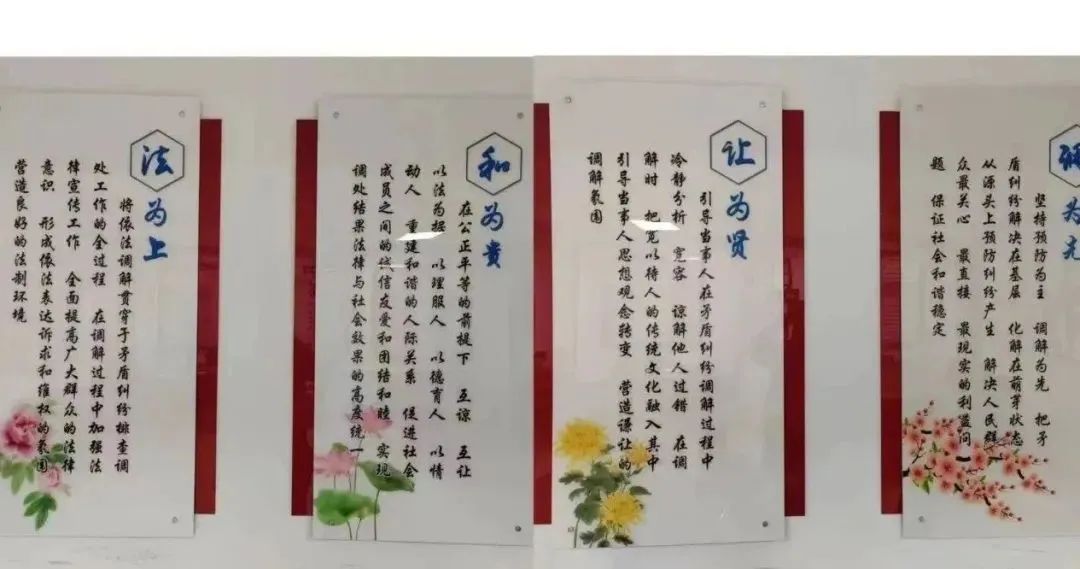 法为上
将依法调解贯穿于矛盾纠纷排查调
处工作的全过程 在调解过程中加强法
律宣传工作 全面提高广大群众的法律
意识 形成依法表达诉求和维权的氛围
营造良好的法制环境
和为贵
在公正平等的前提下 互谅 互让
以法为据 以理服人 以德育人 以情
动人 重建和谐的人际关系 促进社会
成员之间的诚信友爱和团结和睦 实现
调处结果法律与社会效果的高度统一
让为贤
引导当事人在矛盾纠纷调解过程中
冷静分析 宽容 谅解他人过错 在调
解时 把宽以待人的传统文化融入其中
引导当事人思想观念转变 营造谦让的
调解氛围
调为先
坚持预防为主 调解为先 把矛
盾纠纷解决在基层 化解在萌芽状态
从源头上预防纠纷产生 解决人民群
众最关心 最直接 最现实的利益问
题 保证社会和谐稳定